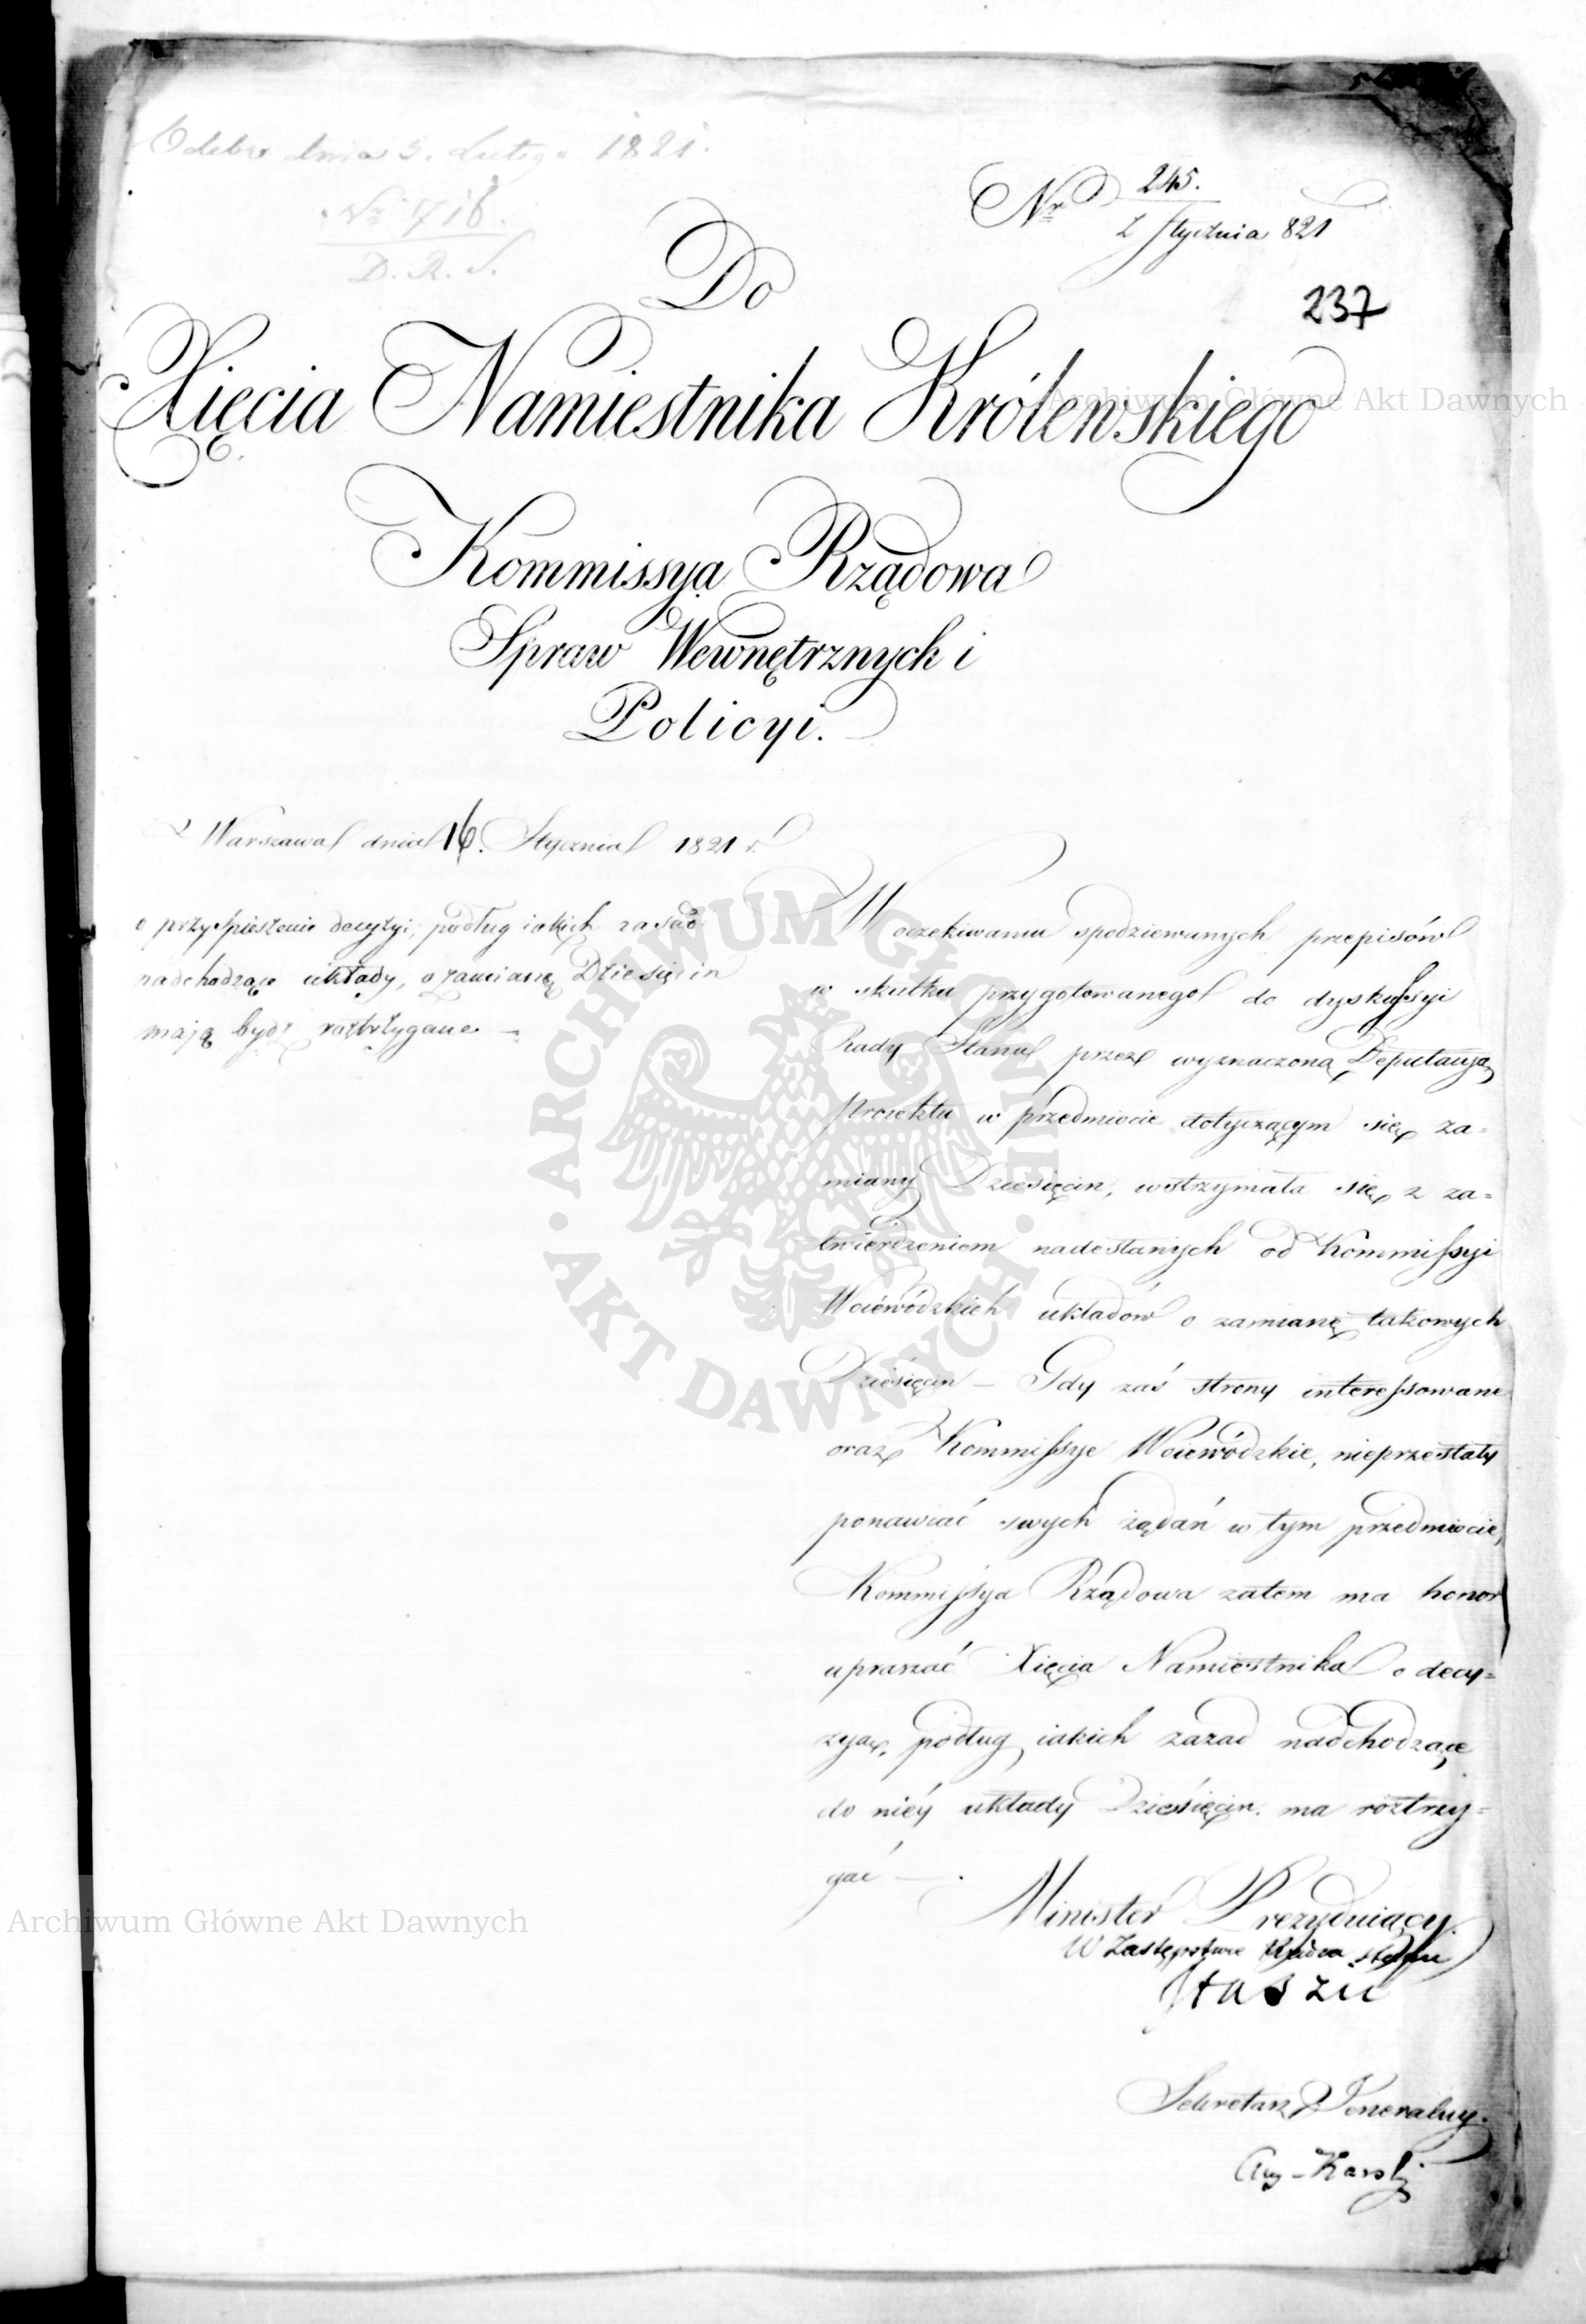 Odebr dnia 3. Lutego 1821.
Nº 716.
D. R. S.
Nr 245.
2 Stycznia 821
237
Do
Xięcia Namiestnika Królewskiego
Kommissya Rządowa
Spraw Wewnętrznych i
Policyi.
z Warszawa dnia 16. Stycznia 1821 r.
o przyspieszenie decyzyi, podług iakich zasad
nadchodzące układy, o zamianę Dziesięcin
mają bydź roztrzygane –
W oczekiwaniu spodziewanych przepisów
w skutku przygotowanego do dyskussyi
Rady Stanu przez wyznaczoną Deputacyą
Proiektu w przedmiocie dotyczącym się za=
miany Dziesięcin, wstrzymała się z za=
twierdzeniem nadesłanych od Kommissyi
Woiewódzkich układów o zamianę takowych
Dziesięcin – Gdy zaś strony interessowane
oraz Kommissye Woiewódzkie, nieprzestały
ponawiać swych żądań w tym przedmiocie,
Kommissya Rządowa zatem ma honor
upraszać Xięcia Namiestnika o decy=
zyą, podług iakich zazad nadchodzące
do niéy układy Dziesięcin ma roztrzy=
gać –.
Minister Prezyduiący.
W Zastępstwie Radca Stanu
Staszic
Sekretarz Jeneralny.
Aug – Karski
Archiwum Główne Akt Dawnych
Archiwum Główne Akt Dawnych
ARCHIWUM GŁÓWNE · AKT DAWNYCH ·